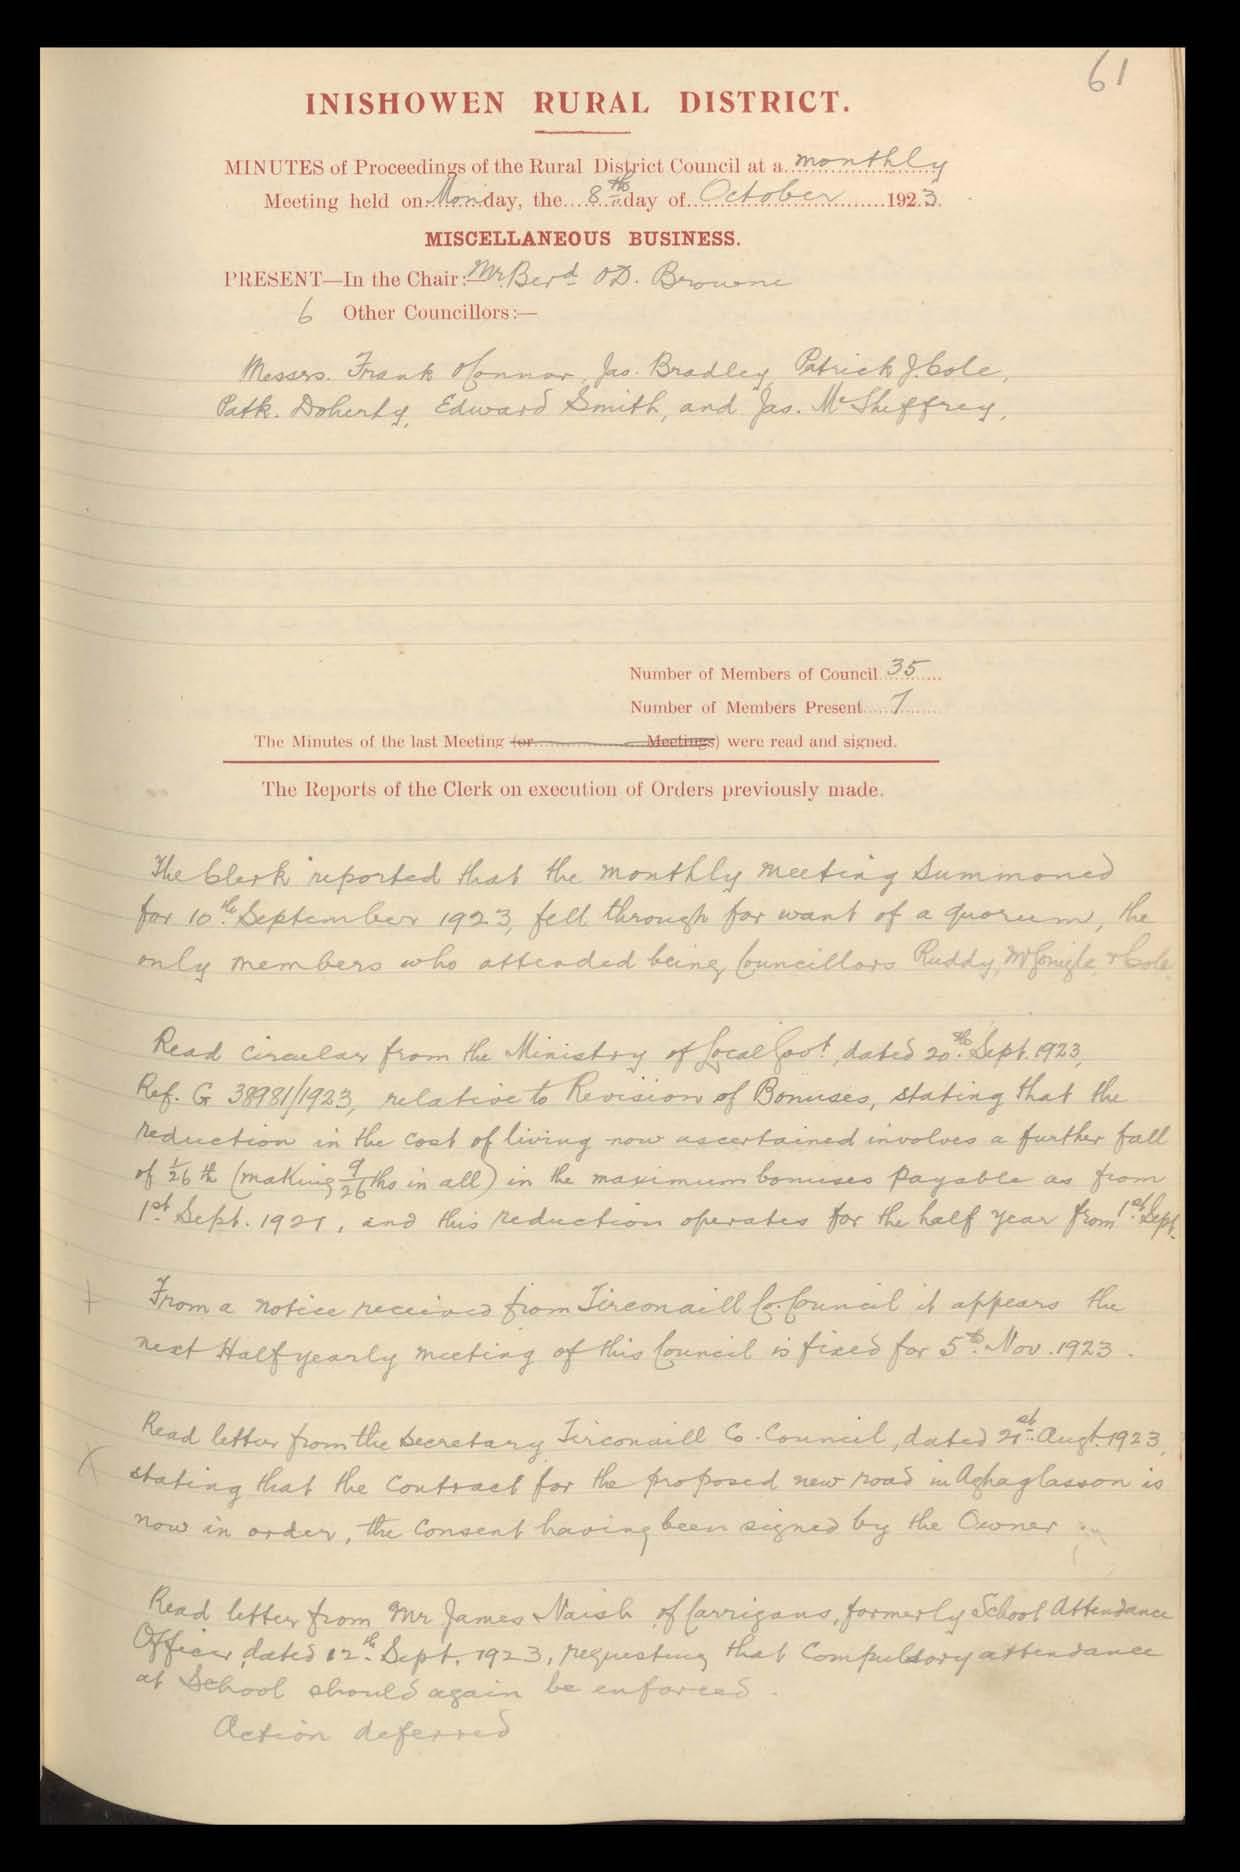 61
INISHOWEN RURAL DISTRICT.
MINUTES of Proceedings of the Rural District Council at a monthly
Meeting held on Monday, the 8th day of October 1923.
MISCELLANEOUS BUSINESS.
PRESENT—In the Chair:— Mr. Berd O'D. Browne
6 Other Councillors:—
Messrs. Frank O'Connor, Jas. Bradley, Patrick J. Cole,
Patk. Doherty, Edward Smith, and Jas. McSheffrey.
Number of Members of Council 35
Number of Members Present 7
The Minutes of the last Meeting (or Meetings) were read and signed.
The Reports of the Clerk on execution of Orders previously made.
The Clerk reported that the monthly meeting summoned
for 10th September 1923, fell through for want of a quorum, the
only members who attended being Councillors Ruddy, McGonigle & Cole.
Read circular from the Ministry of Local Govt, dated 20th Sept. 1923,
Ref. G 38981/1923, relative to Revision of Bonuses, stating that the
reduction in the cost of living now ascertained involves a further fall
of 1/26th (making 9/26ths in all) in the maximum bonuses payable as from
1st Sept. 1921, and this reduction operates for the half year from 1st Sept.
+ From a notice received from Tirconaill Co. Council it appears the
next Half yearly meeting of this Council is fixed for 5th Nov. 1923.
Read letter from the Secretary Tirconaill Co. Council, dated 21st Augt. 1923,
X stating that the Contract for the proposed new road in Aghaglasson is
now in order, the Consent having been signed by the Owner
Read letter from Mr James Naish of Carrigans, formerly School Attendance
Officer, dated 12th Sept. 1923, requesting that Compulsory attendance
at School should again be enforced.
Action deferred